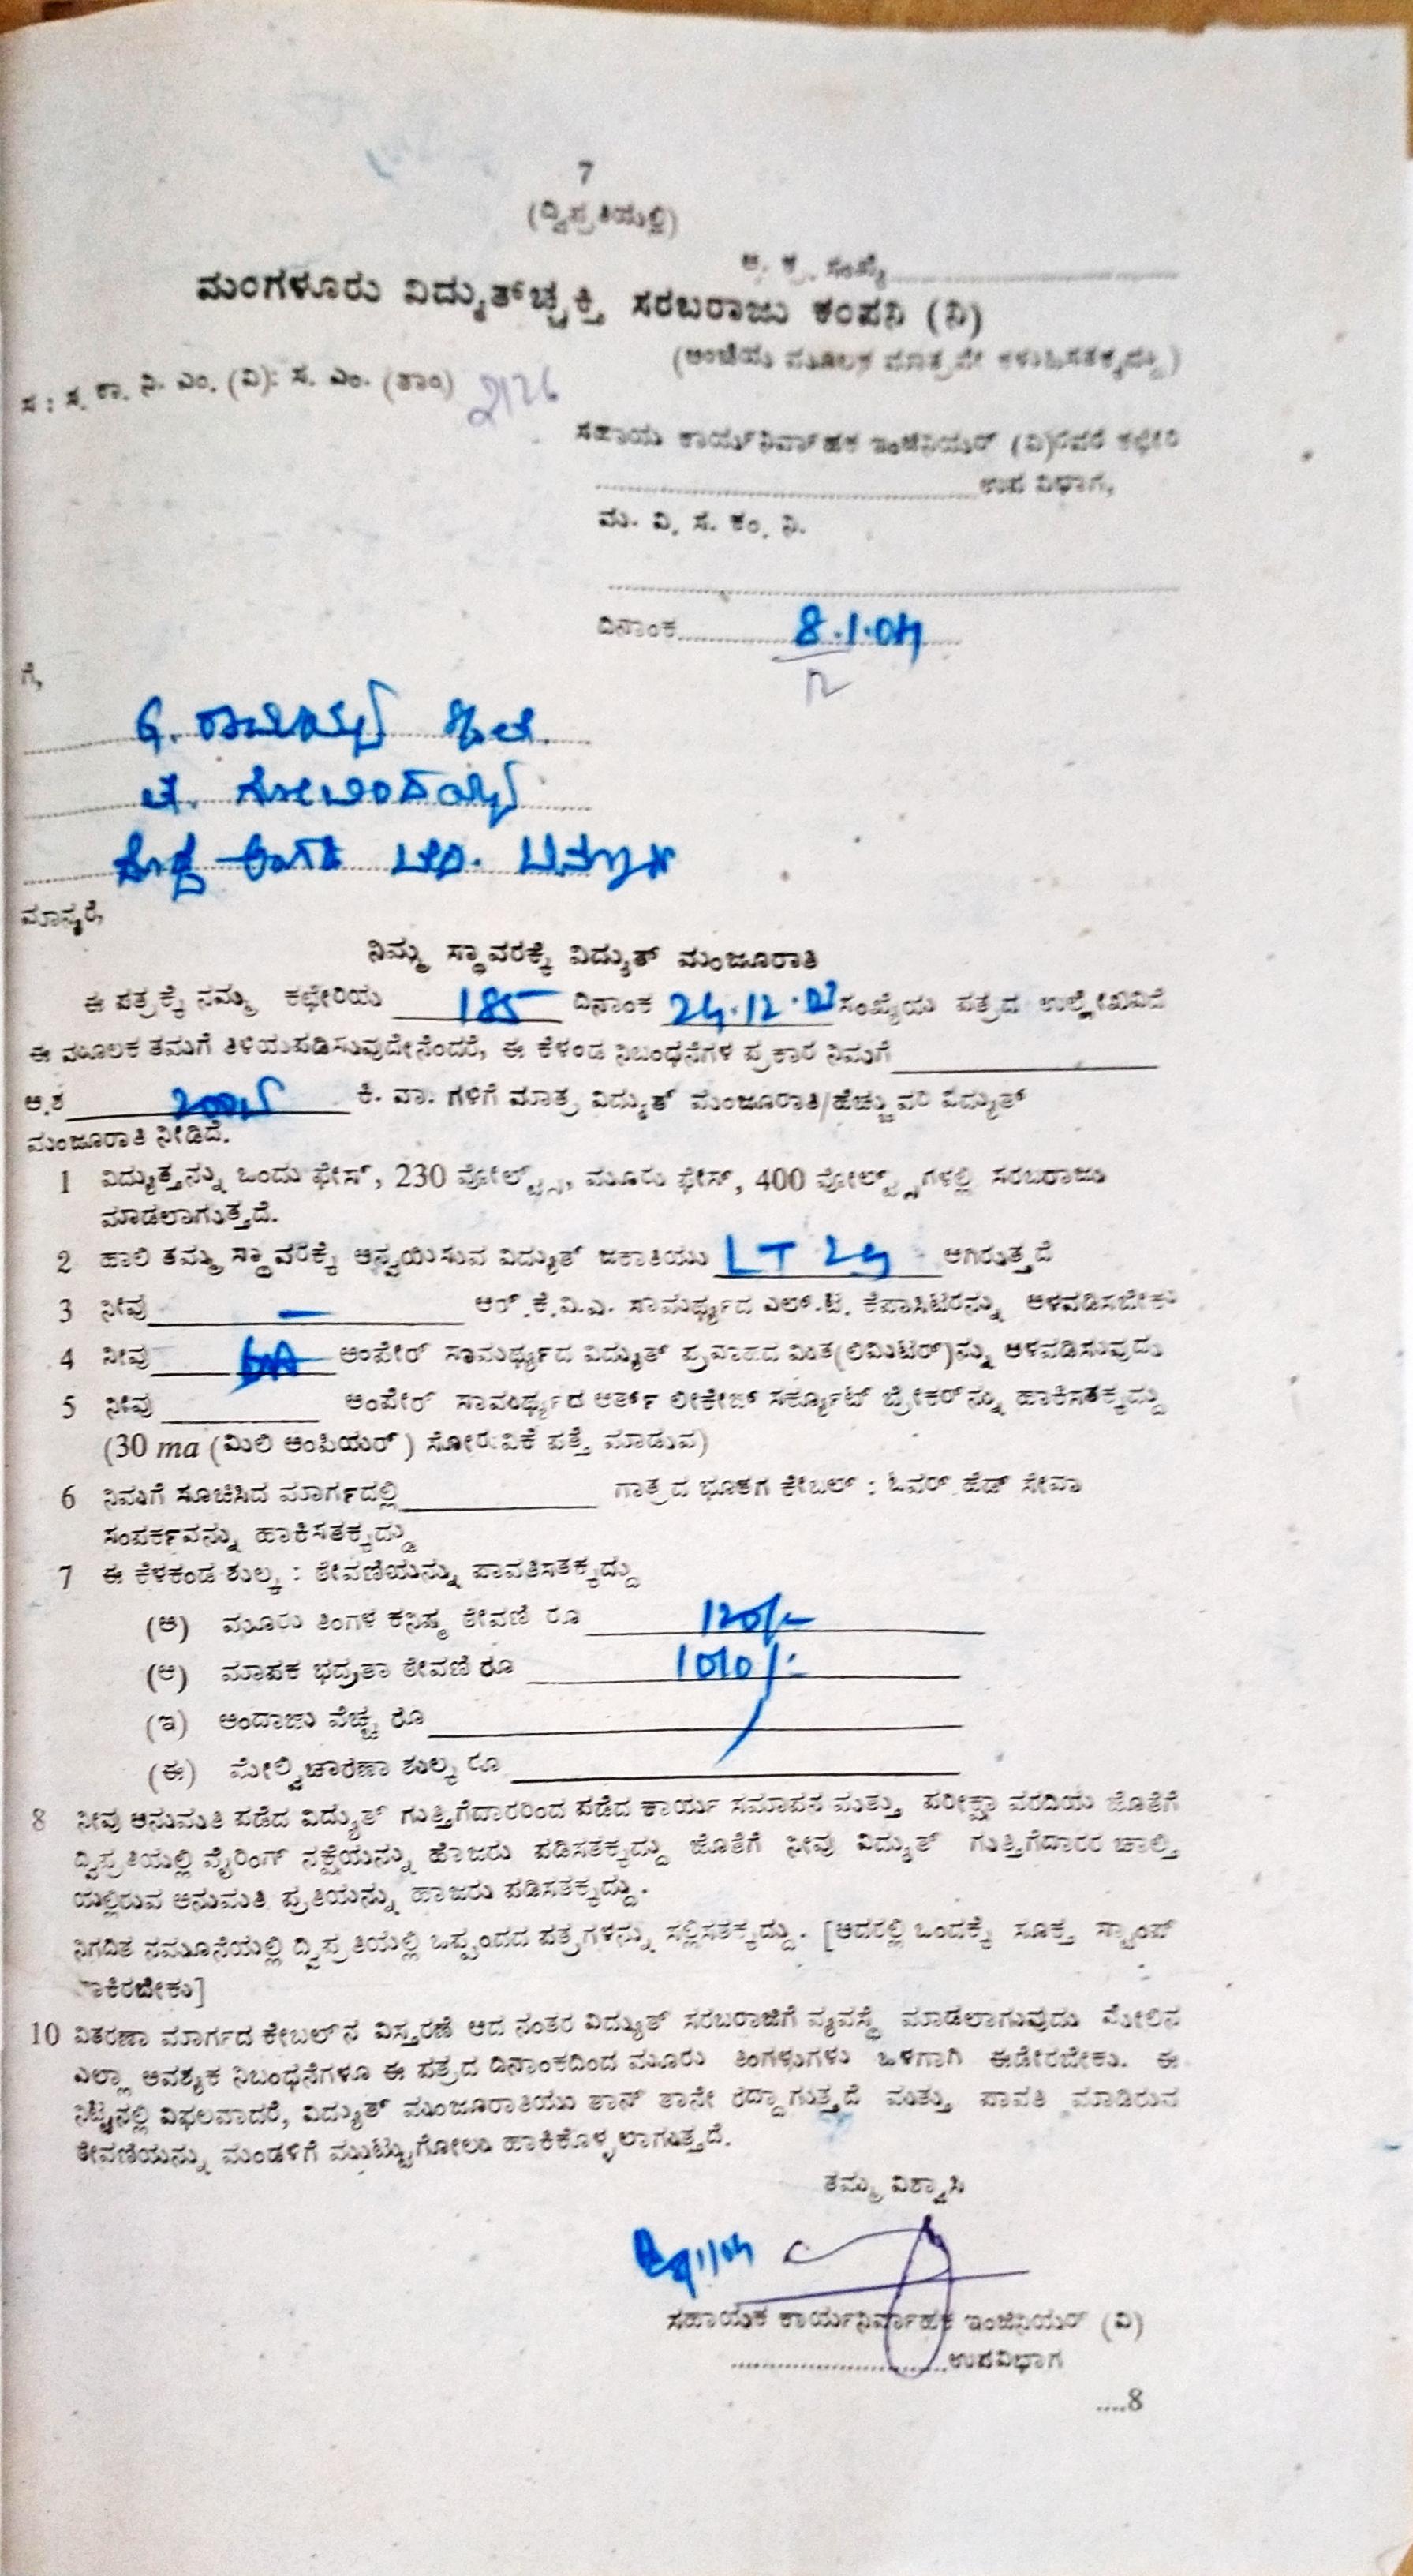 7
(ದ್ವಿಪ್ರತಿಯಲ್ಲಿ)
ಆ. ಕ್ರ. ಸಂಖ್ಯೆ
ಮಂಗಳೂರು ವಿದ್ಯುತ್‌ಚ್ಛಕ್ತಿ ಸರಬರಾಜು ಕಂಪನಿ (ನಿ)
(ಅಂಚೆಯ ಮೂಲಕ ಮಾತ್ರವೇ ಕಳುಹಿಸತಕ್ಕದ್ದು)
ಸ : ಸ. ಕಾ. ನಿ. ಎಂ. (ವಿ): ಸ. ಎಂ. (ತಾಂ)
ಸಹಾಯ ಕಾರ್ಯನಿರ್ವಾಹಕ ಇಂಜಿನಿಯರ್ (ವಿ)ರವರ ಕಛೇರಿ
ಉಪ ವಿಭಾಗ,
ಮ. ವಿ. ಸ. ಕಂ. ನಿ.
ದಿನಾಂಕ 8.1.04
ಗೆ,
ಮಾನ್ಯರೆ,
ನಿಮ್ಮ ಸ್ಥಾವರಕ್ಕೆ ವಿದ್ಯುತ್ ಮಂಜೂರಾತಿ
ಈ ಪತ್ರಕ್ಕೆ ನಮ್ಮ ಕಛೇರಿಯ 185 ದಿನಾಂಕ 24.12.03 ಸಂಖ್ಯೆಯ ಪತ್ರದ ಉಲ್ಲೇಖವಿದೆ
ಈ ಮೂಲಕ ತಮಗೆ ತಿಳಿಯಪಡಿಸುವುದೇನೆಂದರೆ, ಈ ಕೆಳಂಡ ನಿಬಂಧನೆಗಳ ಪ್ರಕಾರ ನಿಮಗೆ
ಆ.ಶ ಕಿ. ವಾ. ಗಳಿಗೆ ಮಾತ್ರ ವಿದ್ಯುತ್ ಮಂಜೂರಾತಿ/ಹೆಚ್ಚುವರಿ ವಿದ್ಯುತ್
ಮಂಜೂರಾತಿ ನೀಡಿದೆ.
1 ವಿದ್ಯುತ್ತನ್ನು ಒಂದು ಫೇಸ್, 230 ವೋಲ್ಟ್ಸ್, ಮೂರು ಫೇಸ್, 400 ವೋಲ್ಟ್ಸ್‌ಗಳಲ್ಲಿ ಸರಬರಾಜು
ಮಾಡಲಾಗುತ್ತದೆ.
2 ಹಾಲಿ ತಮ್ಮ ಸ್ಥಾವರಕ್ಕೆ ಅನ್ವಯಿಸುವ ವಿದ್ಯುತ್ ಜಕಾತಿಯು LT ಆಗಿರುತ್ತದೆ
3 ನೀವು — ಆರ್.ಕೆ.ವಿ.ಎ. ಸಾಮರ್ಥ್ಯದ ಎಲ್.ಟಿ. ಕೆಪಾಸಿಟರನ್ನು ಅಳವಡಿಸಬೇಕು
4 ನೀವು ಅಂಪೇರ್ ಸಾಮರ್ಥ್ಯದ ವಿದ್ಯುತ್ ಪ್ರವಾಹದ ಮಿತ(ಲಿಮಿಟರ್)ನ್ನು ಅಳವಡಿಸುವುದು
5 ನೀವು ಅಂಪೇರ್ ಸಾಮರ್ಥ್ಯದ ಅರ್ತ್ ಲೀಕೇಜ್ ಸರ್ಕ್ಯೂಟ್ ಬ್ರೇಕರ್‌ನ್ನು ಹಾಕಿಸತಕ್ಕದ್ದು
(30 ma (ಮಿಲಿ ಅಂಪಿಯರ್) ಸೋರುವಿಕೆ ಪತ್ತೆ ಮಾಡುವ)
6 ನಿಮಗೆ ಸೂಚಿಸಿದ ಮಾರ್ಗದಲ್ಲಿ ಗಾತ್ರದ ಭೂತಗ ಕೇಬಲ್ : ಓವರ್ ಹೆಡ್ ಸೇವಾ
ಸಂಪರ್ಕವನ್ನು ಹಾಕಿಸತಕ್ಕದ್ದು
7 ಈ ಕೆಳಕಂಡ ಶುಲ್ಕ : ಠೇವಣಿಯನ್ನು ಪಾವತಿಸತಕ್ಕದ್ದು
(ಅ) ಮೂರು ತಿಂಗಳ ಕನಿಷ್ಠ ಠೇವಣಿ ರೂ 120/-
(ಆ) ಮಾಪಕ ಭದ್ರತಾ ಠೇವಣಿ ರೂ 1010/-
(ಇ) ಅಂದಾಜು ವೆಚ್ಚ ರೂ
(ಈ) ಮೇಲ್ವಿಚಾರಣಾ ಶುಲ್ಕ ರೂ
8 ನೀವು ಅನುಮತಿ ಪಡೆದ ವಿದ್ಯುತ್ ಗುತ್ತಿಗೆದಾರರಿಂದ ಪಡೆದ ಕಾರ್ಯ ಸಮಾಪನ ಮತ್ತು ಪರೀಕ್ಷಾ ವರದಿಯ ಜೊತೆಗೆ
ದ್ವಿಪ್ರತಿಯಲ್ಲಿ ವೈರಿಂಗ್ ನಕ್ಷೆಯನ್ನು ಹಾಜರು ಪಡಿಸತಕ್ಕದ್ದು ಜೊತೆಗೆ ನೀವು ವಿದ್ಯುತ್ ಗುತ್ತಿಗೆದಾರರ ಚಾಲ್ತಿ
ಯಲ್ಲಿರುವ ಅನುಮತಿ ಪ್ರತಿಯನ್ನು ಹಾಜರು ಪಡಿಸತಕ್ಕದ್ದು.
ನಿಗದಿತ ನಮೂನೆಯಲ್ಲಿ ದ್ವಿಪ್ರತಿಯಲ್ಲಿ ಒಪ್ಪಂದದ ಪತ್ರಗಳನ್ನು ಸಲ್ಲಿಸತಕ್ಕದ್ದು. [ಅದರಲ್ಲಿ ಒಂದಕ್ಕೆ ಸೂಕ್ತ ಸ್ಟಾಂಪ್
ಹಾಕಿರಬೇಕು]
10 ವಿತರಣಾ ಮಾರ್ಗದ ಕೇಬಲ್‌ನ ವಿಸ್ತರಣೆ ಆದ ನಂತರ ವಿದ್ಯುತ್ ಸರಬರಾಜಿಗೆ ವ್ಯವಸ್ಥೆ ಮಾಡಲಾಗುವುದು ಮೇಲಿನ
ಎಲ್ಲಾ ಅವಶ್ಯಕ ನಿಬಂಧನೆಗಳೂ ಈ ಪತ್ರದ ದಿನಾಂಕದಿಂದ ಮೂರು ತಿಂಗಳುಗಳು ಒಳಗಾಗಿ ಈಡೇರಬೇಕು. ಈ
ನಿಟ್ಟಿನಲ್ಲಿ ವಿಫಲವಾದರೆ, ವಿದ್ಯುತ್ ಮಂಜೂರಾತಿಯು ತಾನ್ ತಾನೇ ರದ್ದಾಗುತ್ತದೆ ಮತ್ತು ಪಾವತಿ ಮಾಡಿರುವ
ಠೇವಣಿಯನ್ನು ಮಂಡಳಿಗೆ ಮುಟ್ಟುಗೋಲು ಹಾಕಿಕೊಳ್ಳಲಾಗುತ್ತದೆ.
ತಮ್ಮ ವಿಶ್ವಾಸಿ
ಸಹಾಯಕ ಕಾರ್ಯನಿರ್ವಾಹಕ ಇಂಜಿನಿಯರ್ (ವಿ)
ಉಪವಿಭಾಗ
....8